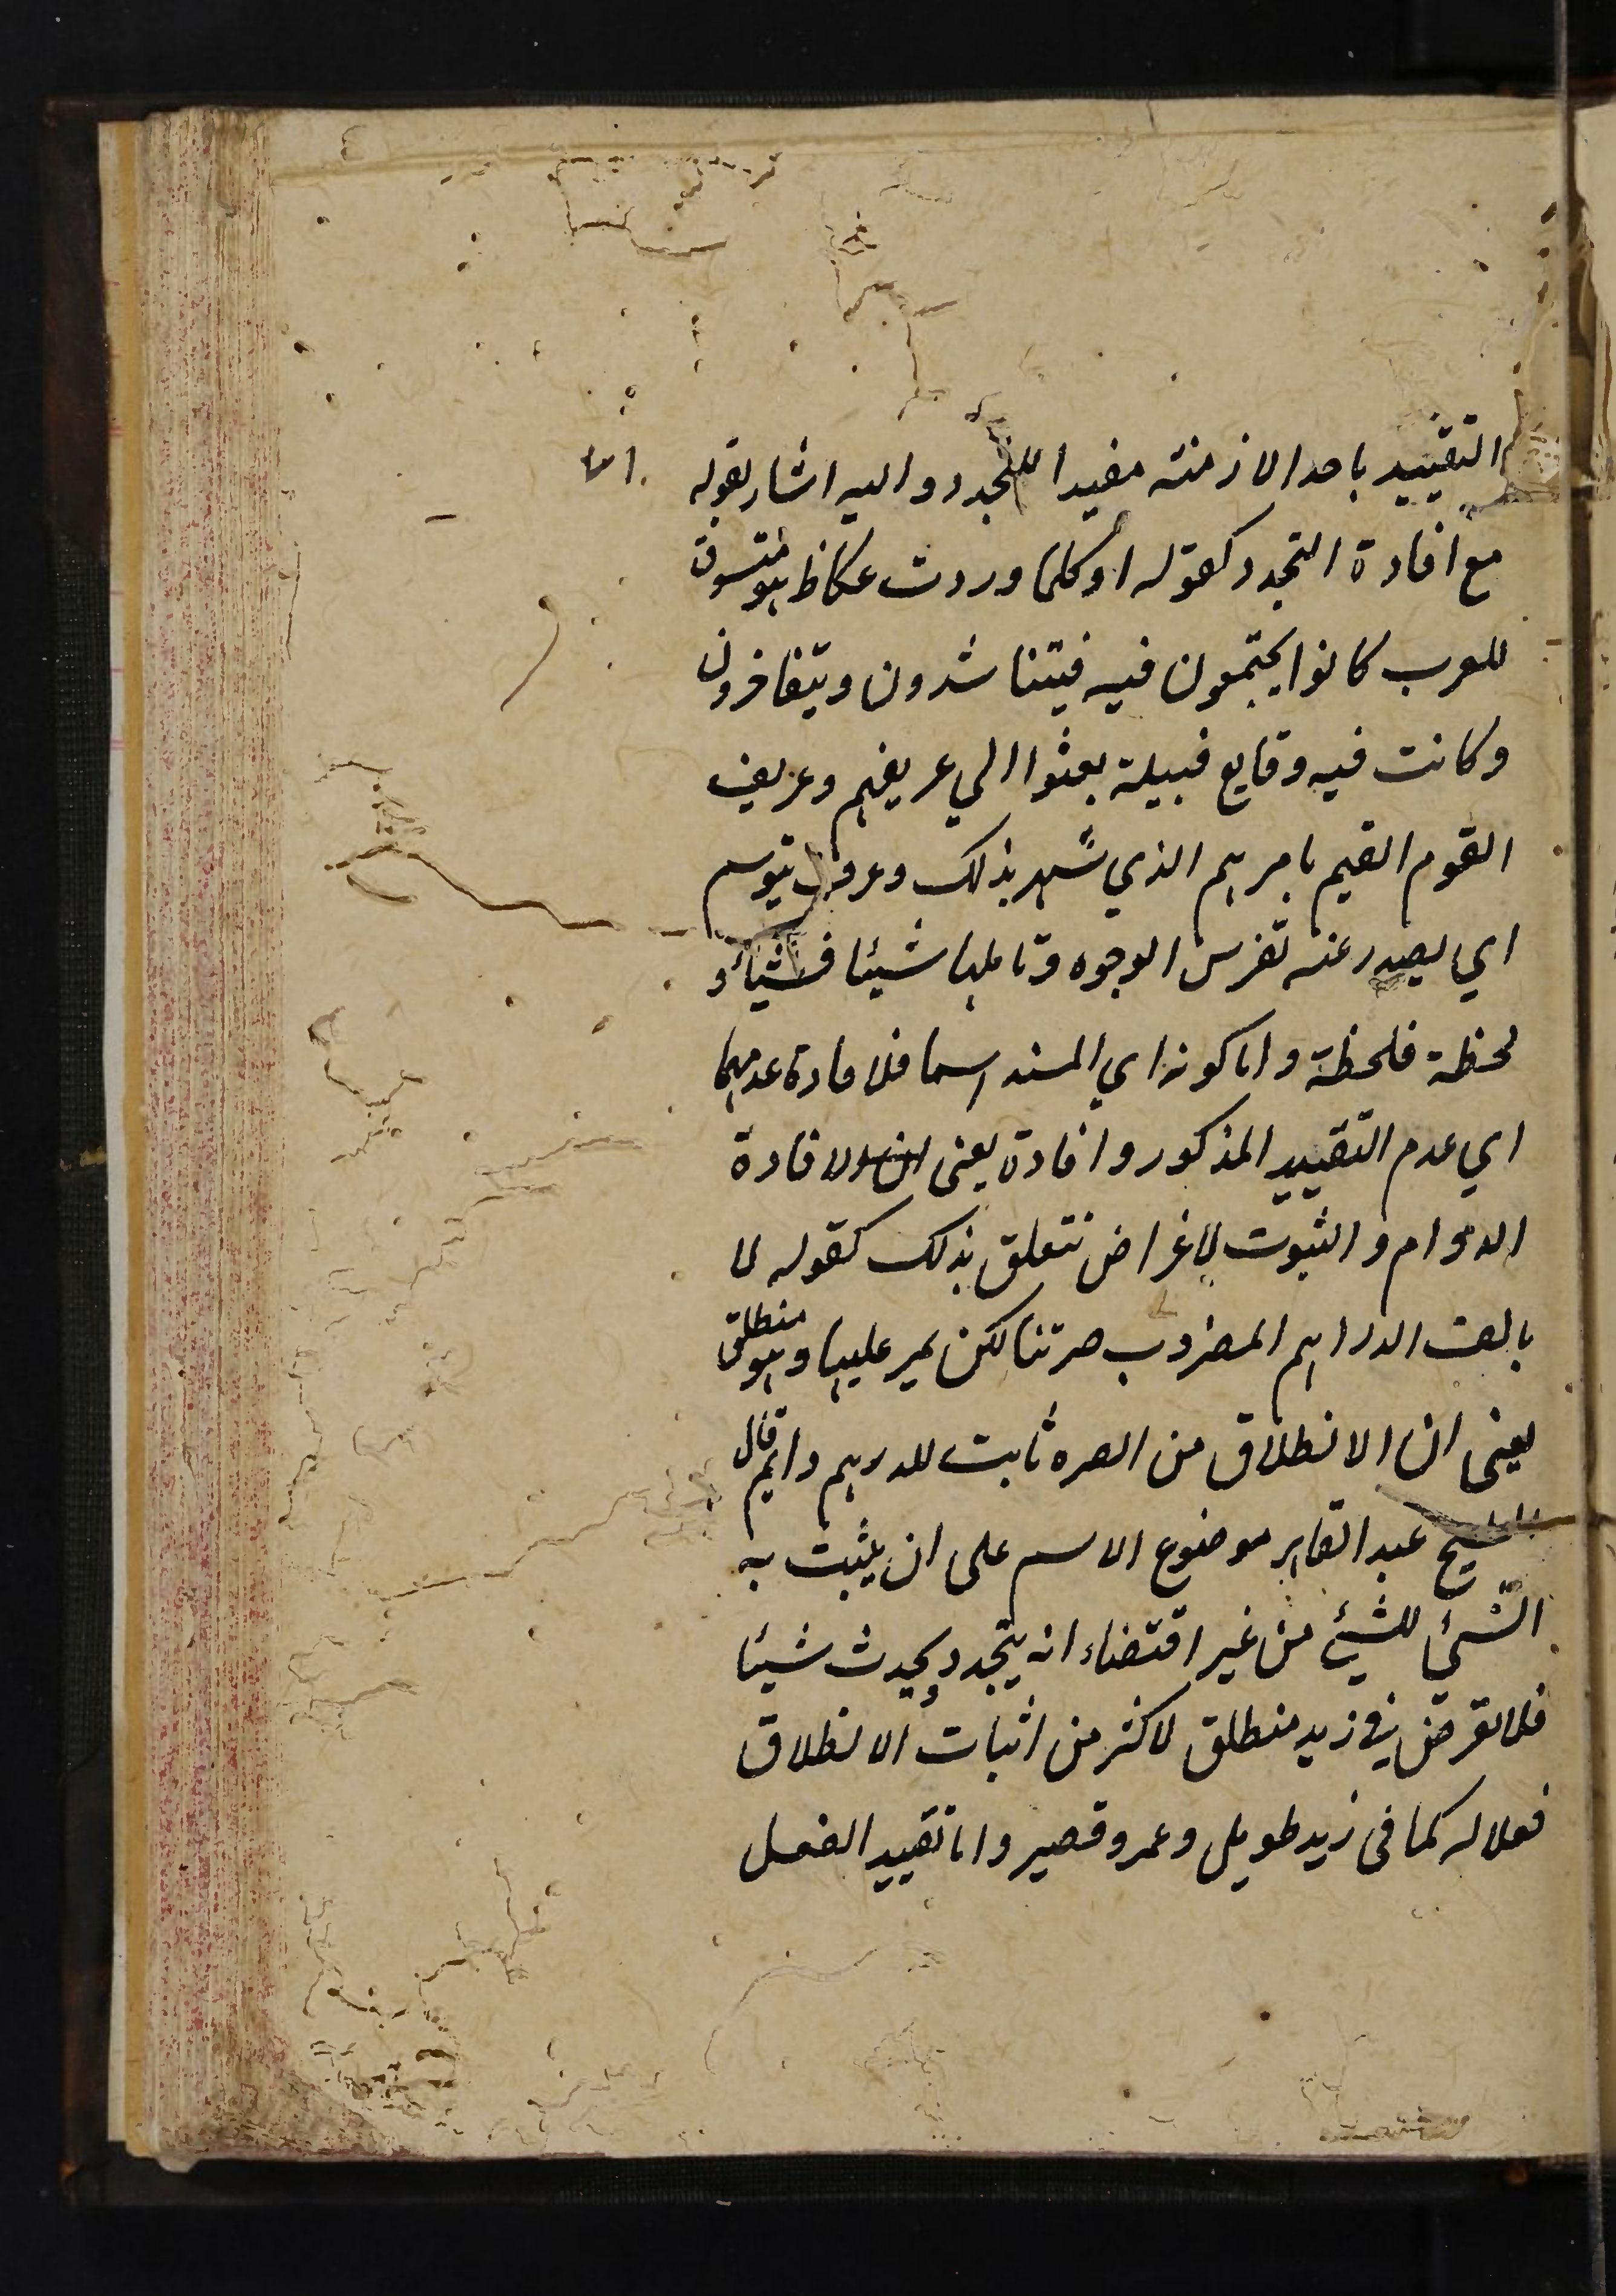 التقييد باحد الازمنته مفيدا للتجدد واليه اشار بقوله
مع افادة التجدد كقوله او كلما وردت عكاظ هو متسوق
للعرب كانوا يجتمعون فيه فيتناشدون ويتفاخرون
وكانت فيه وقايع قبيلة بعثوا الي عريفهم وعريف
القوم القيم بامرهم الذي شهر بذلك وعرف يتوسم
اي يصدر عنه تفرس الوجوه وتاملها شيئا فشيئا و
لحظة فلحظة واما كونه اي المسند اسما فلافادة عدمهما
اي عدم التقييد المذكور وافادة يعني لافادة
الدوام والثبوت لاغراض تتعلق بذلك كقوله لا
يالف الدراهم المضروب صرتنا لكن يمر عليها وهو منطلق
يعني ان الانطلاق من الصره ثابت للدرهم دايم قال
الشيخ عبد القاهر موضوع الاسم على ان يثبت به
الشئ للشئ من غير اقتضاء انه يتجدد ويحدث شيئا
فلا تعرض في زيد منطلق لاكثر من اثبات الانطلاق
فعلا له كما في زيد طويل وعمرو قصير واما تقييد الفعل